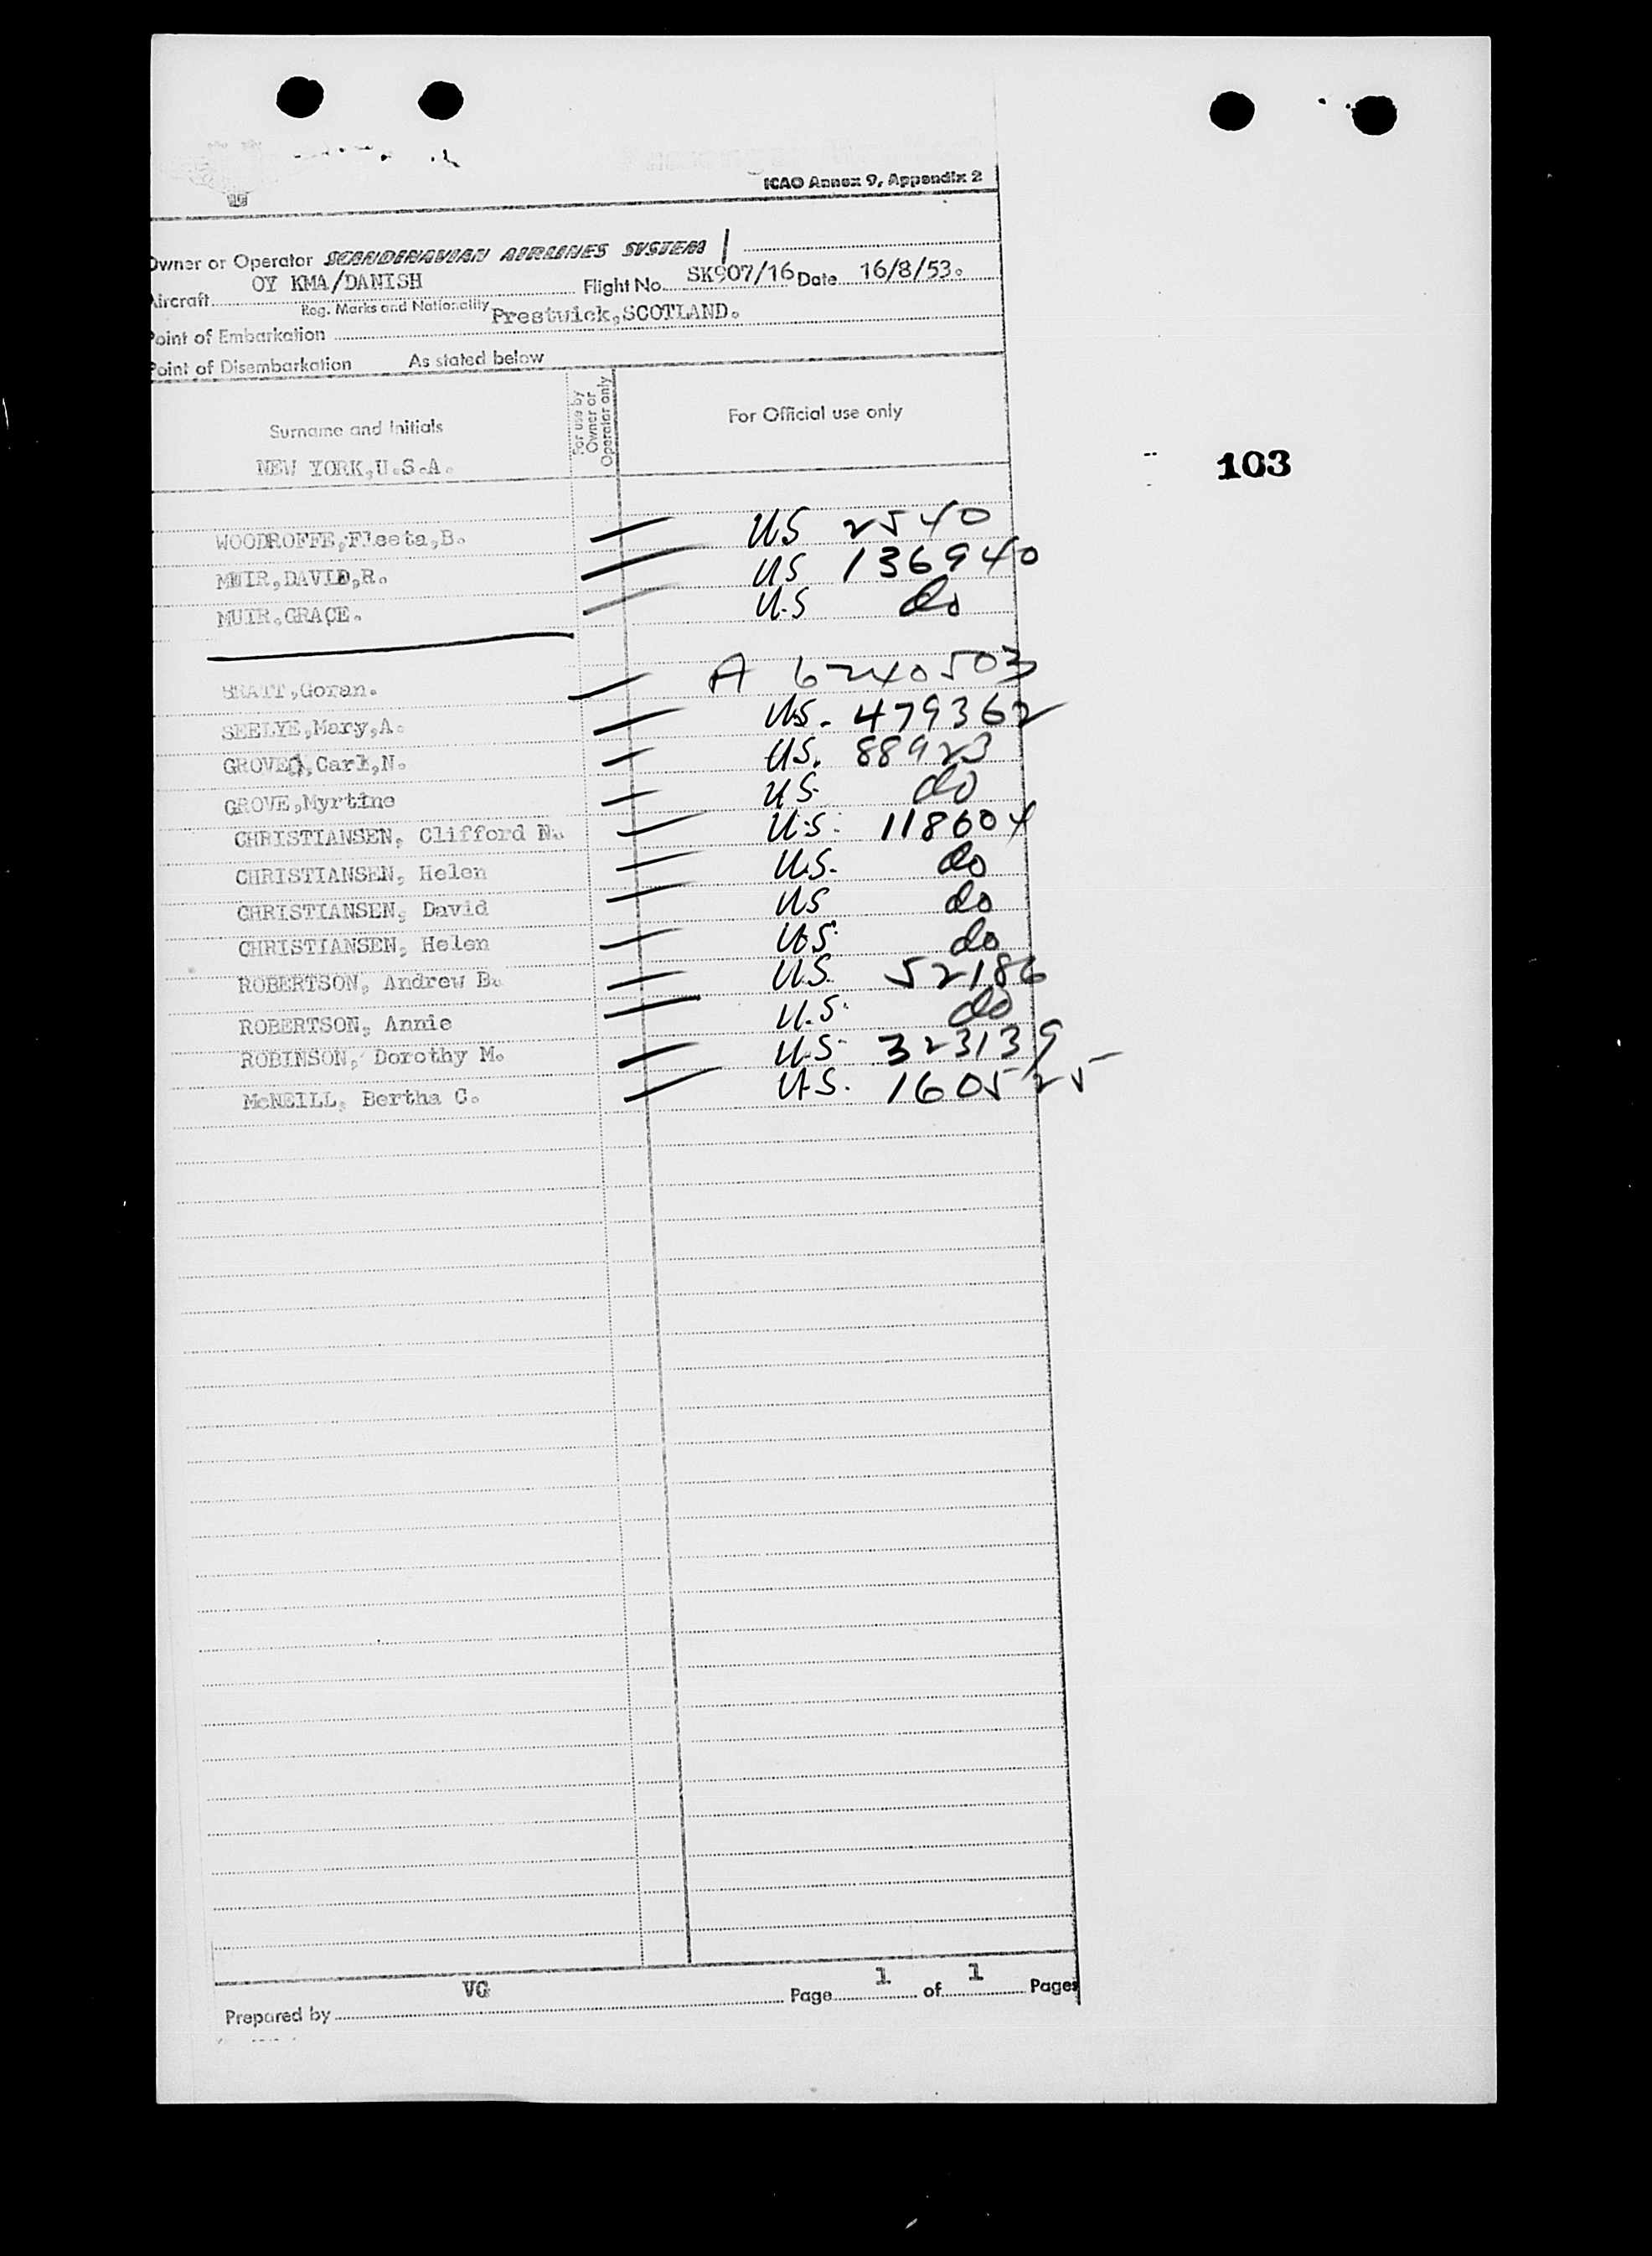 ICAO Annex 9, Appendix 2
Owner or Operator SCANDINAVIAN AIRLINES SYSTEM
Aircraft OY KMA/DANISH Flight No. SK907/16 Date 16/8/53.
Reg. Marks and Nationality
Point of Embarkation Prestwick,SCOTLAND.
Point of Disembarkation As stated below
Surname and Initials
For use by Owner or Operator only
For Official use only
NEW YORK,U.S.A.
103
WOODROFFE,Fleeta,B. US 2540
MUIR,DAVID,R. US 136940
MUIR,GRACE. U.S do
BRATT,Goran. A 6240503
SEELYE,Mary,A. U.S. 479362
GROVE,Carl,N. US. 88923
GROVE,Myrtine US. do
CHRISTIANSEN, Clifford N. U.S. 118604
CHRISTIANSEN, Helen U.S. do
CHRISTIANSEN, David US do
CHRISTIANSEN, Helen US. do
ROBERTSON, Andrew B. U.S. 52186
ROBERTSON, Annie U.S. do
ROBINSON, Dorothy M. U.S. 323139
McNEILL, Bertha C. U.S. 160525
Prepared by VG Page 1 of 1 Pages